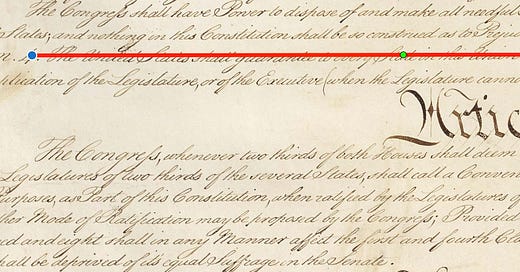 The Congress shall have Power to dispose of and make all needful
States; and nothing in this Constitution shall be so construed as to Preju
The United States shall guarantee to every State in this Union
plication of the Legislature, or of the Executive (when the Legislature canno
Artic
The Congress, whenever two thirds of both Houses shall deem
Legislatures of two thirds of the several States, shall call a Conven
Purposes, as Part of this Constitution, when ratified by the Legislatures of
ther Mode of Ratification may be proposed by the Congress; Provided
red and eight shall in any Manner affect the first and fourth Cla
shall be deprived of its equal Suffrage in the Senate.